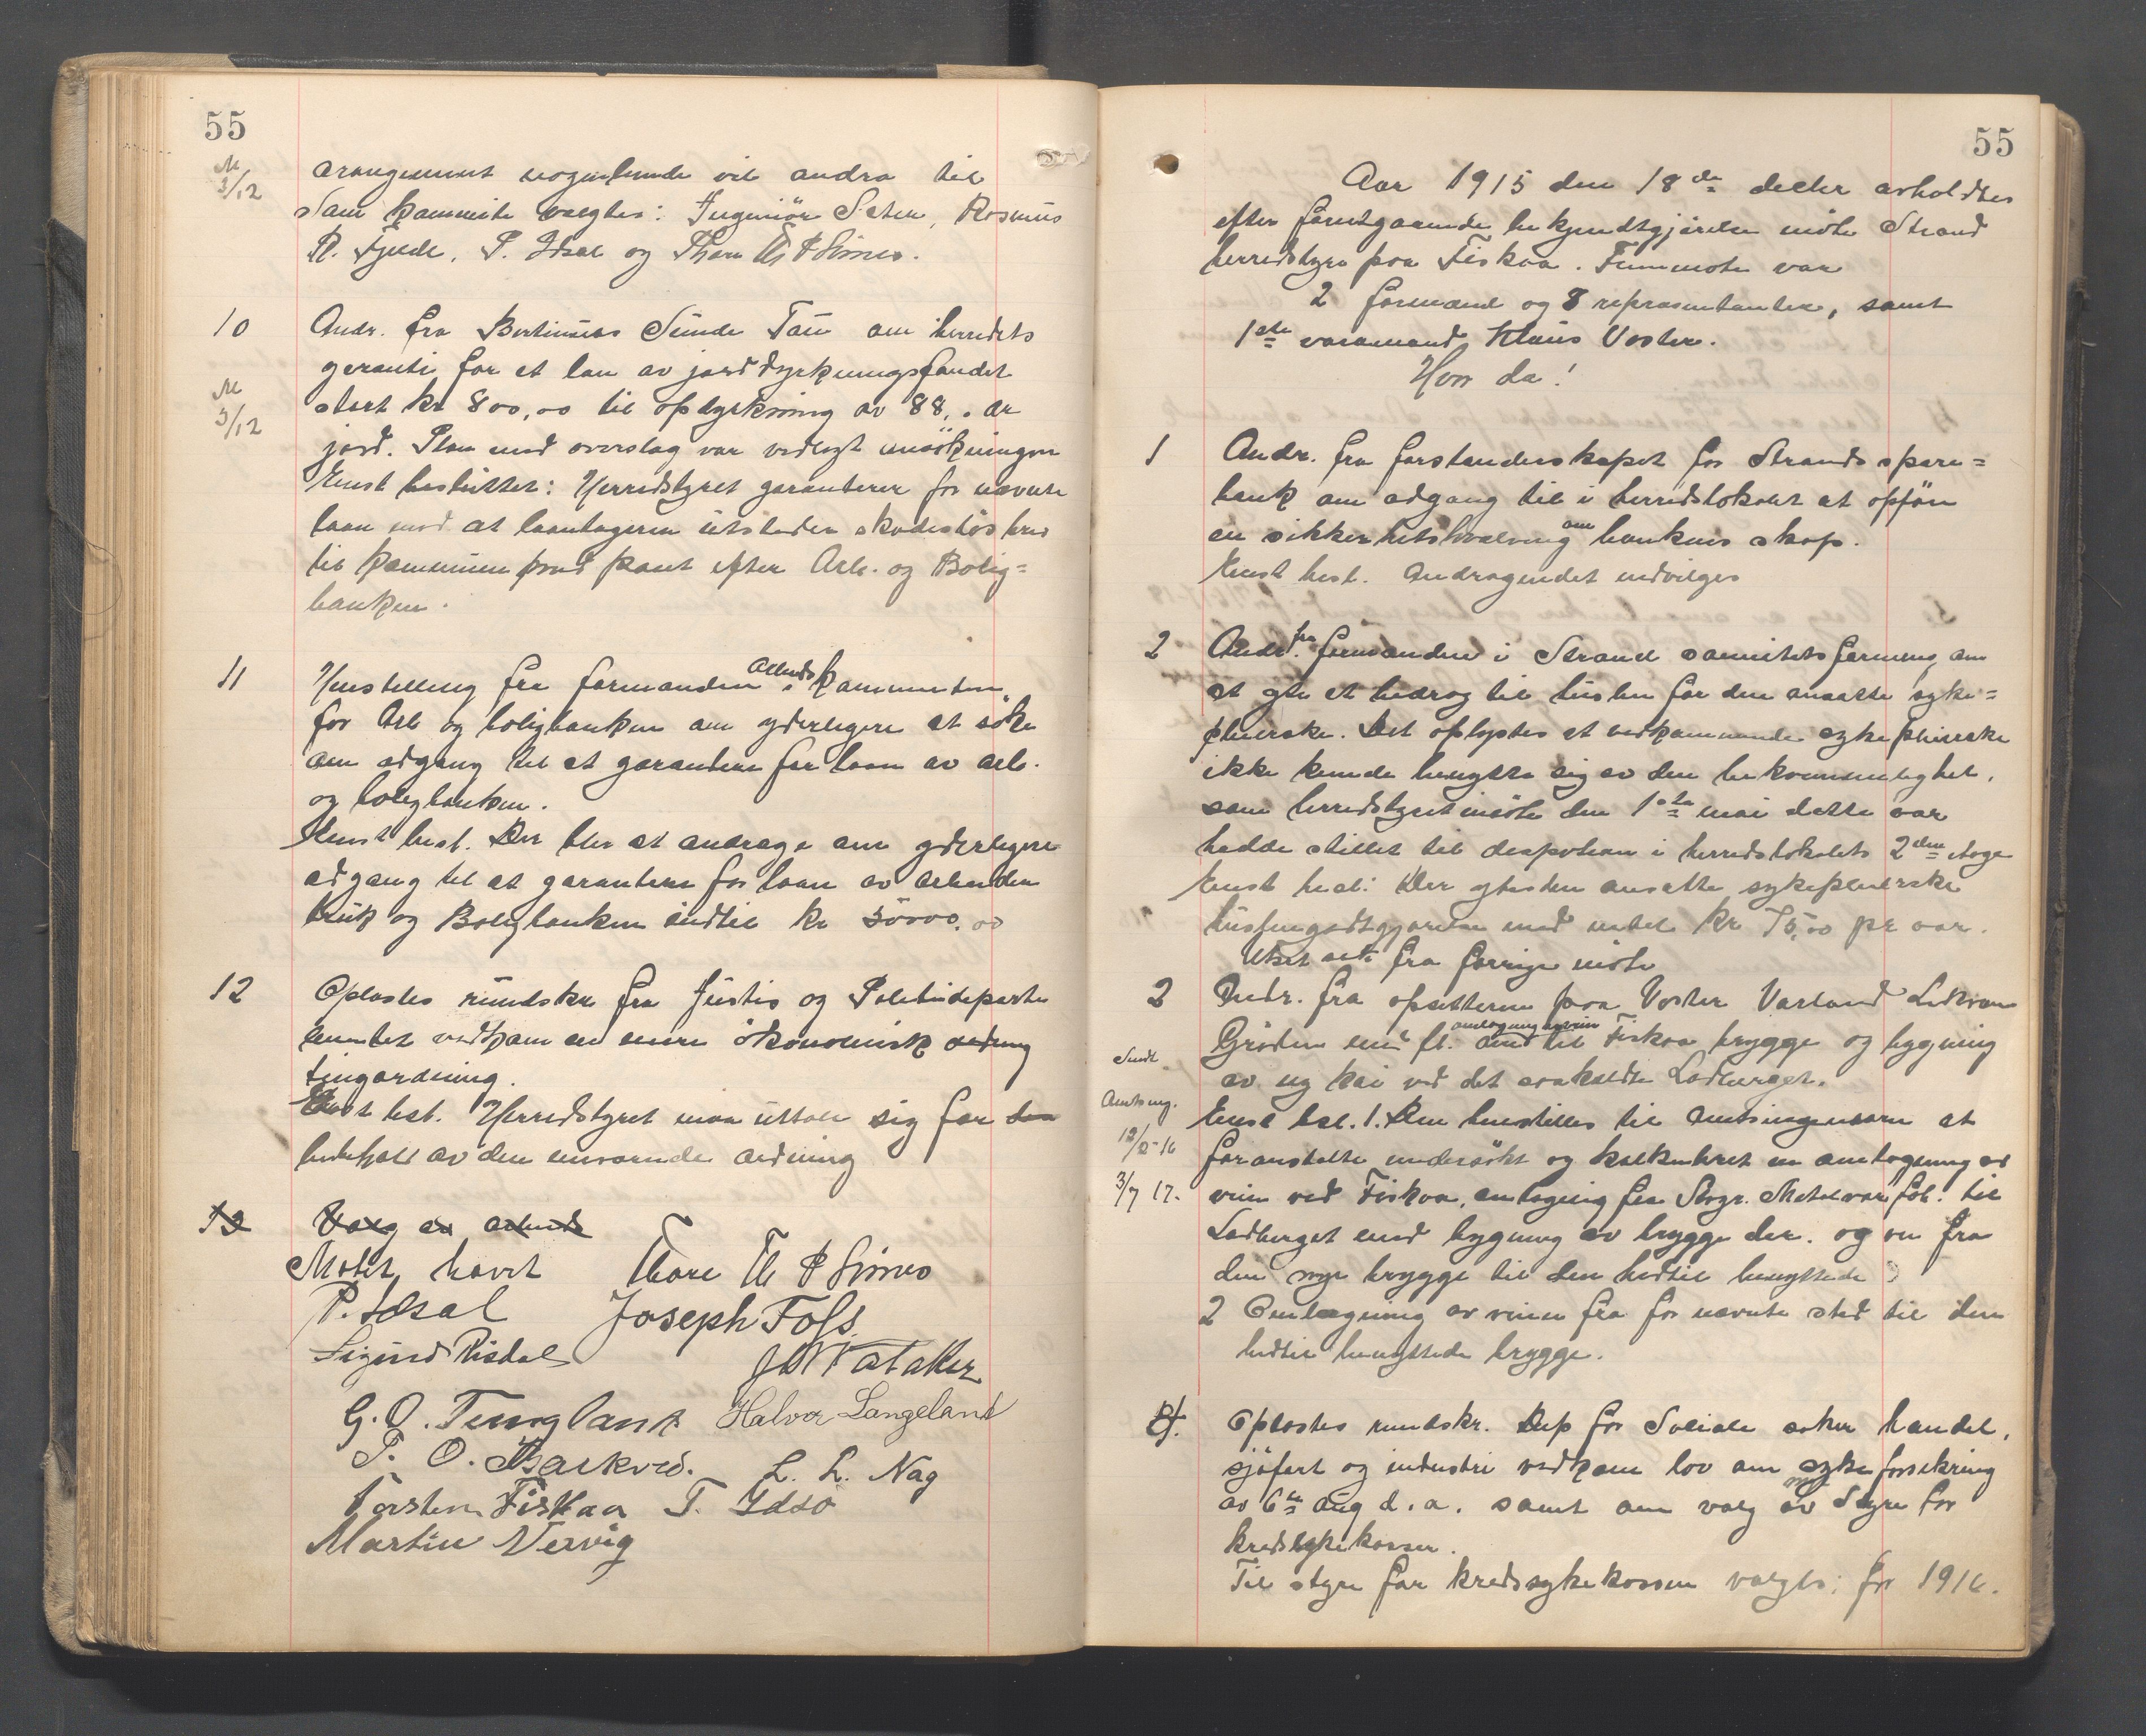 55
M
3/12
arangement nogenlunde vil andra til
Som komite valgtes: Ingeniör Seter, Rasmus
R. Fjelde, P. Idsal og Thore Th P Simes.
10
Andr. fra Bertinius Sunde Tau om herredets
geranti for et lan av jorddyrkningsfondet
M
3/12
stort kr 800,00 til opdyrkning av 88,. ar
jord. Plan med overslag var vedlagt ansökningen
Enst besluttet: Herredstyret garanterer for nævnte
laan mod at laantageren utsteder skadeslösbrev
til kommunen med pant efter Arb. og Bolig=
banken.
11
Henstilling fra formanden i Arbeids kommiteen
for Arb og boligbanken om yderligere at söke
om adgang til at garantere for laan av arb.
og boligbanken.
Enst besl. Der blir at andrage om yderligere
adgang til at garantere for laan av Arbeider
bruk og Boligbanken indtil kr 50000,00
12
Oplæstes rundskr fra Justis og Politideparte
mentet vedkom en mere ökonomisk ordning
tingordning.
Enst best. Herredstyret maa uttale sig for
bibehold av den nuværende ordning
13 Valg av arbeids
Mötet hævet Thore Th P Simes
P. Idsal Joseph Fofs.
Sigurd Risdal J W Vataker
G. O. Tungland Halvor Langeland
P. O. Barkved. L. L. Nag
Torsten Fiskaa T. Idsö
Martin Nervig
55
Aar 1915 den 18de decbr avholdtes
efter forutgaaende bekjendtgjörelse möte Strand
herredstyre paa Fiskaa. Fremmöte var
2 formænd og 8 repræsentanter, samt
1ste varamand Klaus Voster.
Hvor da!
1
Andr. fra forstanderskapet for Strands spare=
bank om adgang til i herredslokalet at opföre
en sikkerhetshvælving om bankens skap.
Enst besl. Andragendet indvilges
2
Andr. fra formanden i Strand sanitetsforening om
at yte et bidrag til husleie for den ansatte syke=
pleierske. Det oplystes at vedkommende sykepleierske
ikke kunde benytte sig av den bekvemmelighet,
som herredstyret i möte den 1ste mai dette aar
hadde stillet til desposisjon i herredslokalets 2den etage
Enst besl: Der ytes den ansatte sykepleierske
husleiegodtgjörelse med indtil kr 75,00 pr aar.
Utsat sak fra forrige möte
3
Andr. fra opsitterne paa Voster Varland Leitvam
Gröden med fl. om omlægning av vei til Fiskaa brygge og bygning
Sendt
av ny kai ved det saakaldte Ladberget.
Amtsing.
Enst besl. 1. Den henstilles til amtsingeniören at
12/2-16
foranstalte undersökt og kalkuleret en omlægning av
3/7 17.
veien ved Fiskaa, omlægning fra Stvgr. Metelvar fob. til
Ladberget med bygning av brygge der. og vei fra
den nye brygge til den hidtil benyttede
2 Omlægning av veien fra for nævnte sted til den
hidtil benyttede brygge.
4.
Oplæstes rundskr. Dep for Sociale saker handel,
sjöfart og industri vedkom lov om sykeforsikring
av 6te aug d. a. samt om valg av Styre for
kredssykekasser.
Til styre for kredssykekassen valgtes: for 1916.